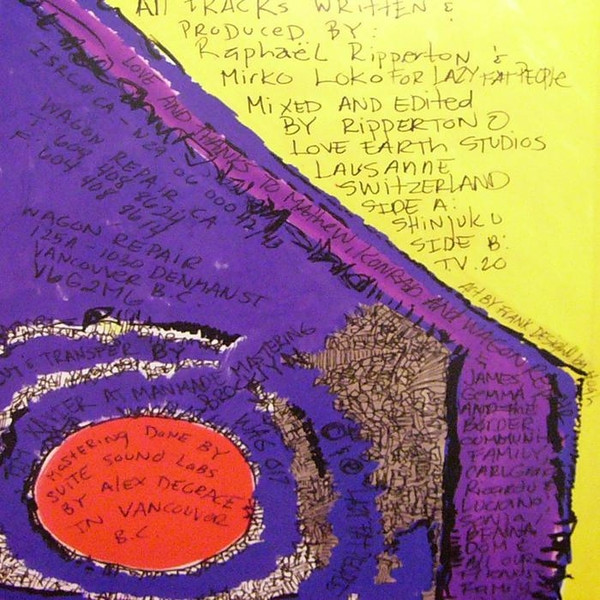 All TRACKS WRITTEN &
PRODUCED BY:
Raphaël Ripperton &
MIRKO LOKO FOR LAZY FAT PEOPLE
MIXED AND EDITED
BY RIPPERTON @
LOVE EARTH STUDIOS
LAUSANNE
SWITZERLAND
SIDE A:
SHINJUKU
SIDE B:
T.V. 20
LOVE AND THANKS TO Mathew, KONRAD AND WAGON REPAIR
ART BY FRANK DESIGN
WAGON REPAIR CA
T: 604 408 8624
F: 604 408 8677
WAGON REPAIR
125A - 1030 DENMAN ST
VANCOUVER B.C.
V6G2M6
TRANSFER BY
AT MANMADE MASTERING
MASTERING DONE BY
SUITE SOUND LABS
BY ALEX DEGRACE
IN VANCOUVER
B.C.
&
JAMES
GEMMA
AND THE
BOLDER
COMMUNITY
FAMILY
CARL
Ricardo
LUCIANO
BENNA
DOM &
ALL OUR
FRIENDS
FAMILY